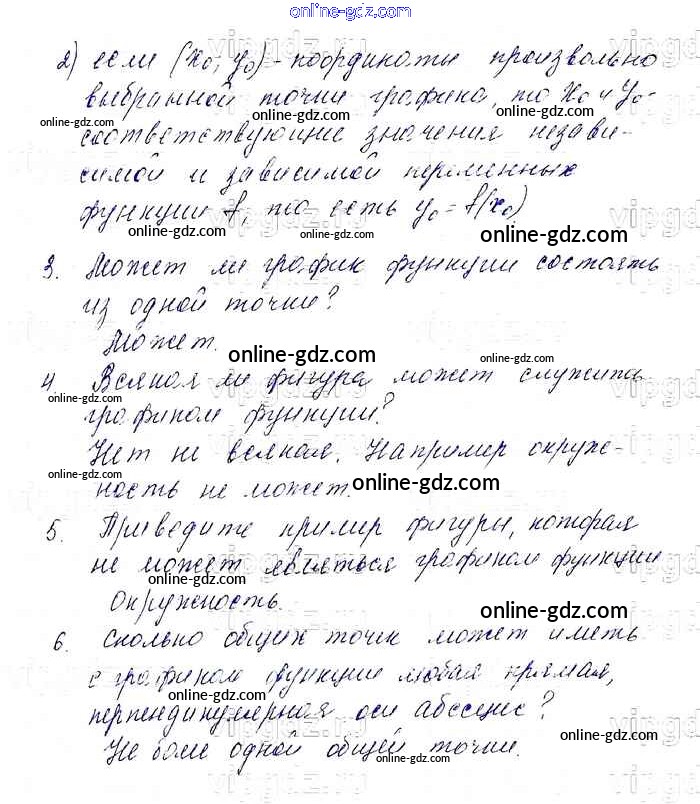 online-gdz.com
2) если (x₀; y₀) - координаты произвольно
выбранной точки графика, то x₀ и y₀ -
online-gdz.com
online-gdz.com
соответствующие значения незави-
симой и зависимой переменных
функции f, то есть y₀ = f(x₀)
online-gdz.com
online-gdz.com
3. Может ли график функции состоять
из одной точки?
online-gdz.com
Может.
online-gdz.com
online-gdz.com
4. Всякая ли фигура может служить
online-gdz.com
графиком функции?
Нет не всякая. Например окруж-
ность не может.
online-gdz.com
online-gdz.com
5. Приведите пример фигуры, которая
не может являться графиком функции
online-gdz.com
Окружность.
online-gdz.com
6. Сколько общих точек может иметь
с графиком функции любая прямая,
online-gdz.com
перпендикулярная оси абсцисс?
online-gdz.com
Не боле одной общей точки.
online-gdz.com